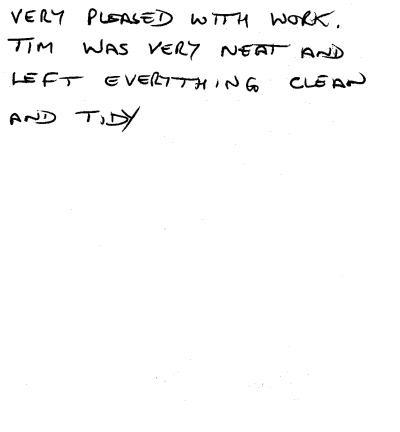 VERY PLEASED WITH WORK.
TIM WAS VERY NEAT AND
LEFT EVERYTHING CLEAN
AND TIDY